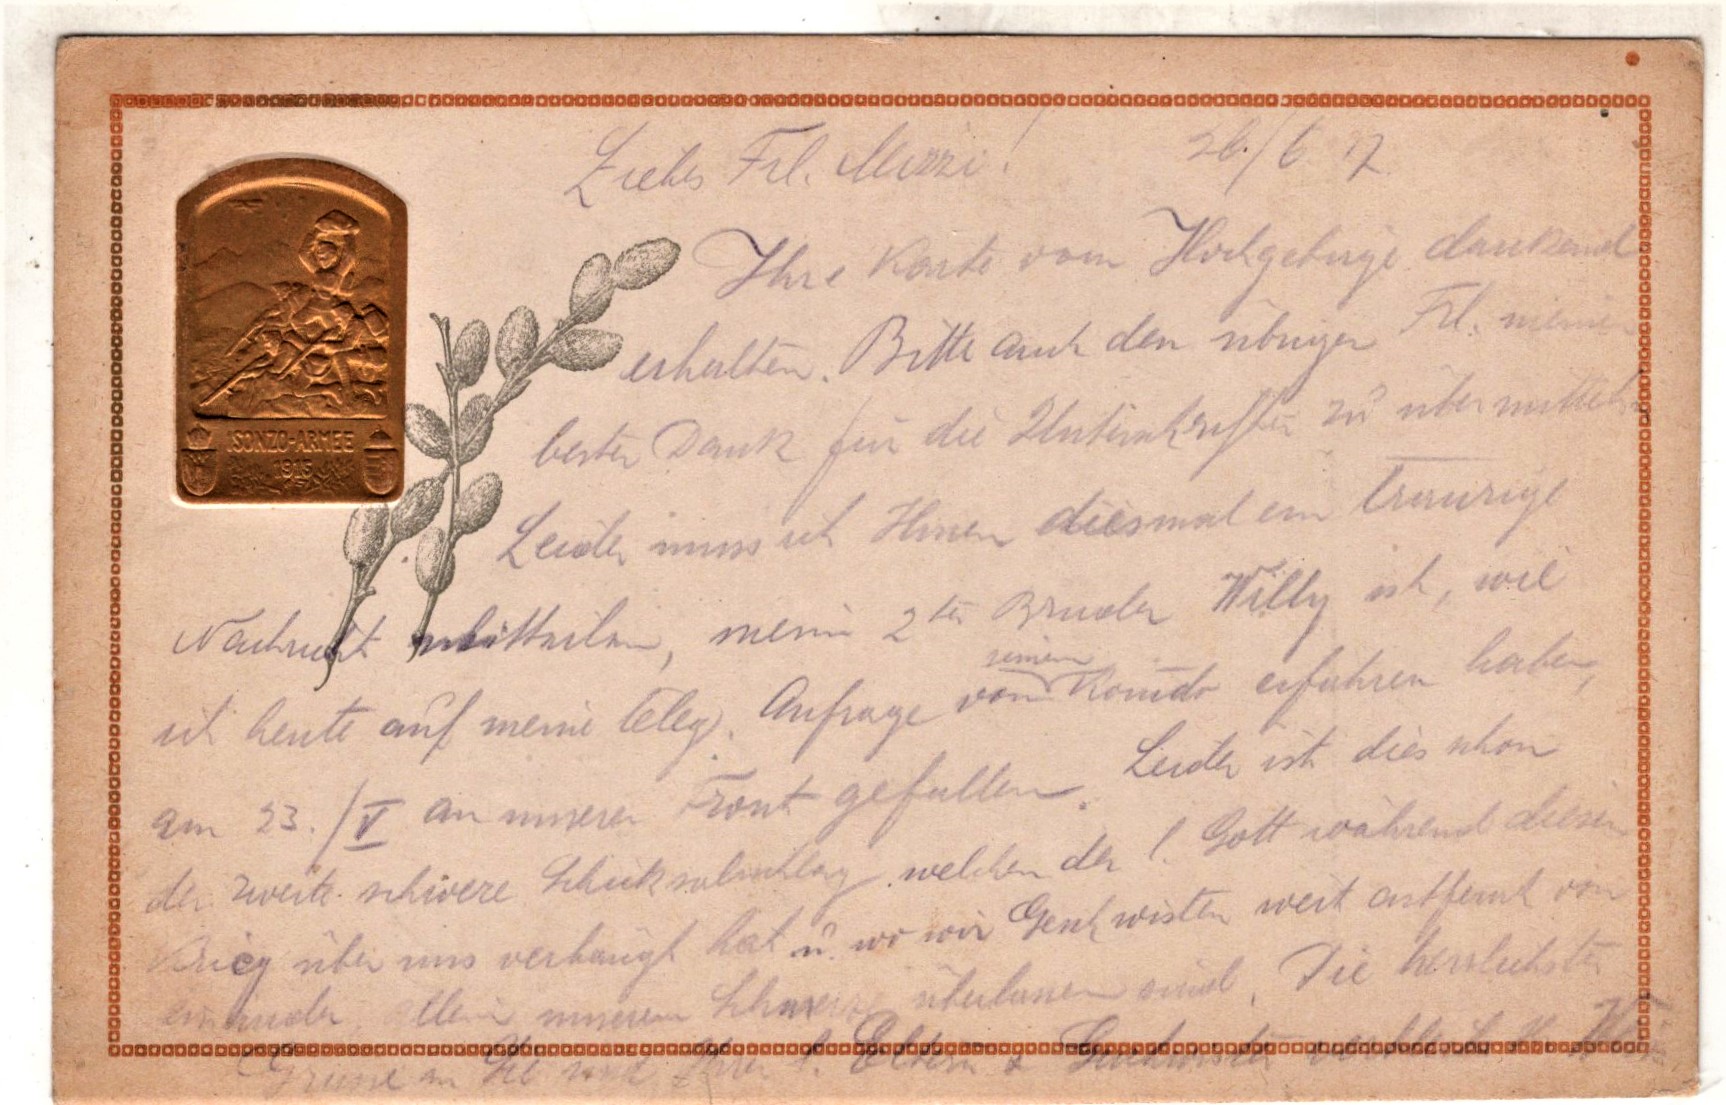 Liebes Frl. Mizzi! 26./6. 17
Ihre Karte vom Hochgebirge dankend
erhalten. Bitte auch den übrigen Frl. meinen
besten Dank für die Unterschriften zu übermitteln
Leider muss ich Ihnen diesmal ein traurige
Nachricht mitteilen, mein 2ter Bruder Willy ist, wie
seinem
ich heute auf meine teleg. Anfrage von Komdo erfahren habe,
am 23./V an unserer Front gefallen. Leider ist dies schon
der zweite schwere Schicksalschlag welchen der l. Gott während diesen
Krieg über uns verhängt hat u. wo wir Geschwister weit entfernt von
einander, allein unserem Schmerze überlassen sind. Die herzlichsten
Grüsse an Sie und Ihre l. Eltern & Geschwister
ISONZO-ARMEE
1915